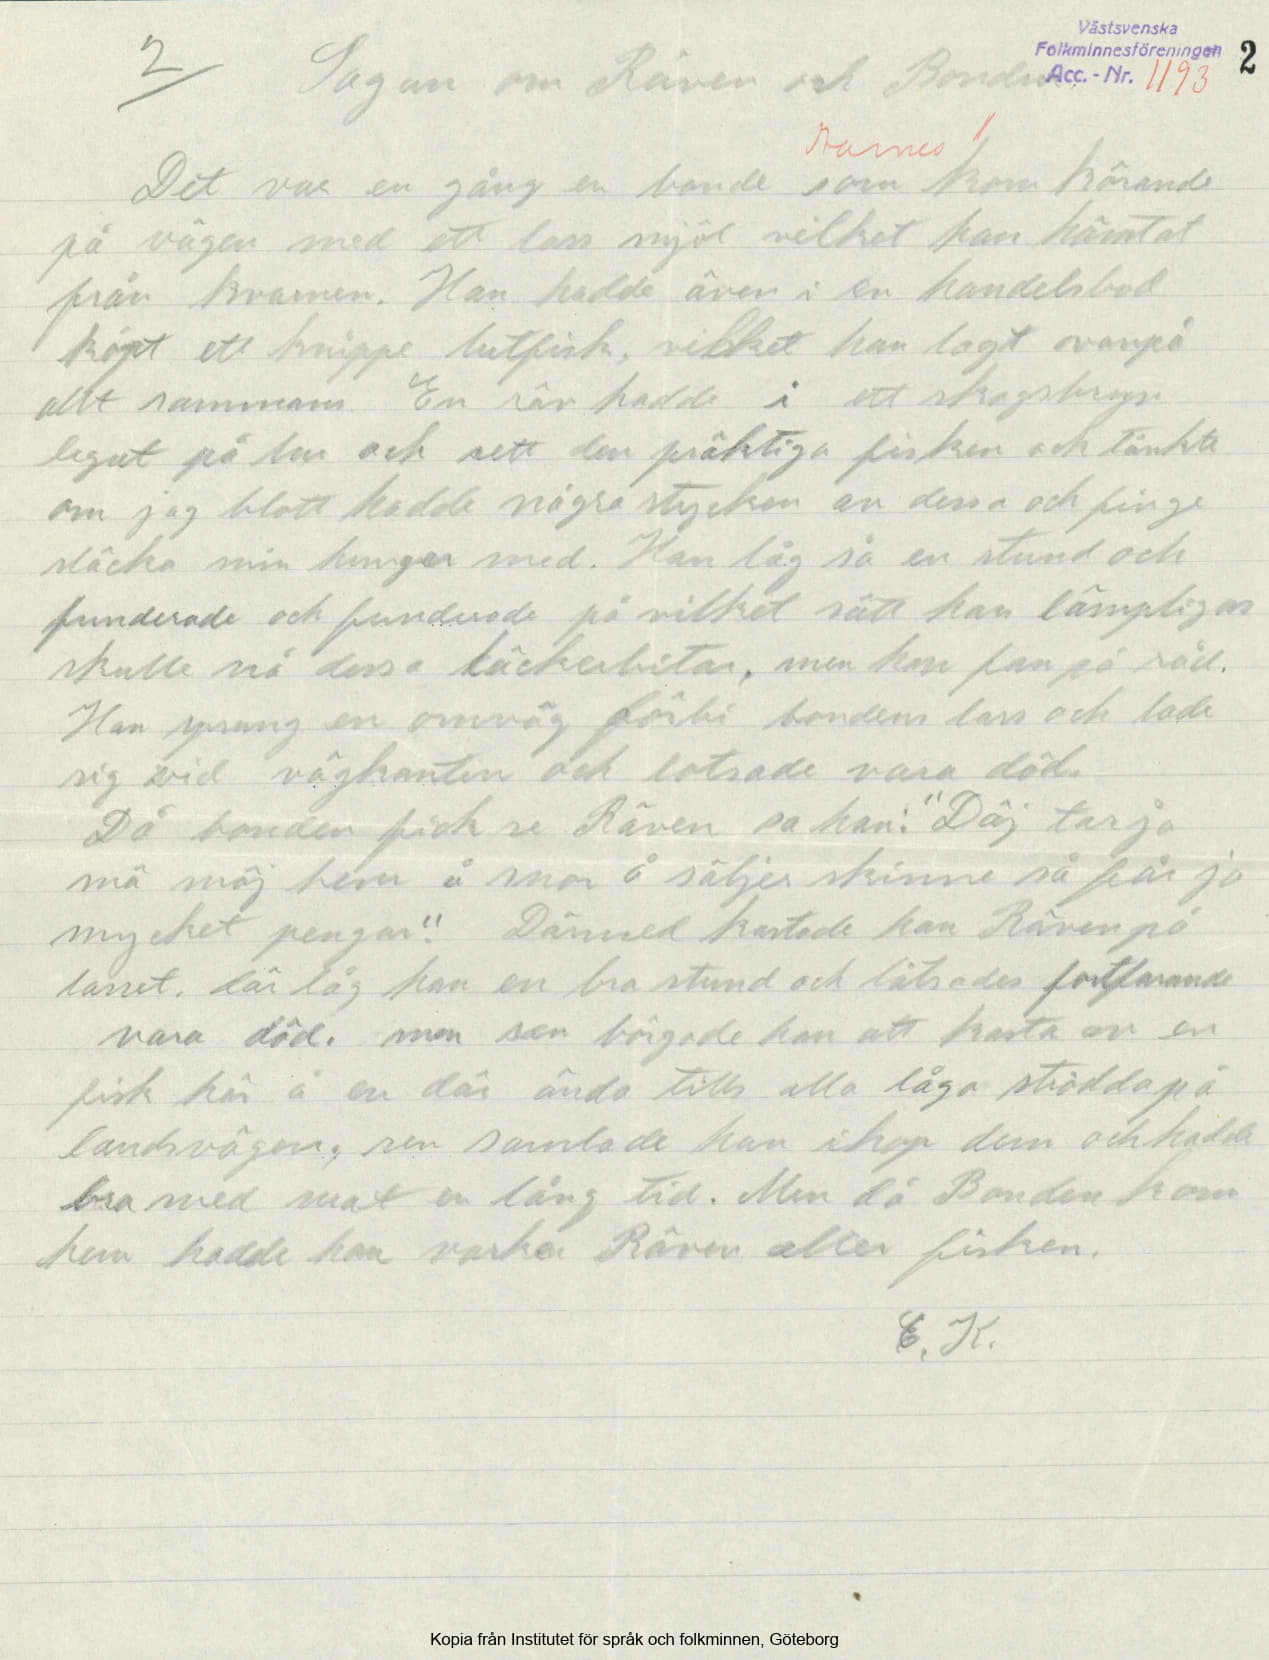 Västsvenska
Folkminnesföreningen
Acc. - Nr. 1193
2
2
Sagan om Räven och Bonden.
Det var en gång en bonde som kom körande
på vägen med ett lass mjöl vilket han hämtat
från kvarnen. Han hadde även i en handelsbod
köpt ett knippe lutfisk, vilket han lagt ovanpå
allt sammans. En räv hadde i ett skogsbryn
legat på lur och sett den präktiga fisken och tänkte
om jag blott hadde några stycken av dessa och finge
släcka min hunger med. Han låg så en stund och
funderade och funderade på vilket sätt han lämpligas
skulle nå dessa läckerbitar, men han fan på råd.
Han sprang en omväg förbi bondens lass och lade
sig vid vägkanten och lotsade vara död.
Då bonden fick se Räven sa han: "Däj tar ja
mä mäj hem å snor å säljer skinne så får ja
mycket pengar". Därmed kastade han Räven på
lasset. där låg han en bra stund och låtsades fortfarande
vara död. men sen börgade han att kasta av en
fisk här å en där ända tills alla låga strödda på
landsvägen, sen samlade han ihop dem och hadde
bra med mat en lång tid. Men då Bonden kom
hem hadde han varken Räven eller fisken.
E. K.
Kopia från Institutet för språk och folkminnen, Göteborg